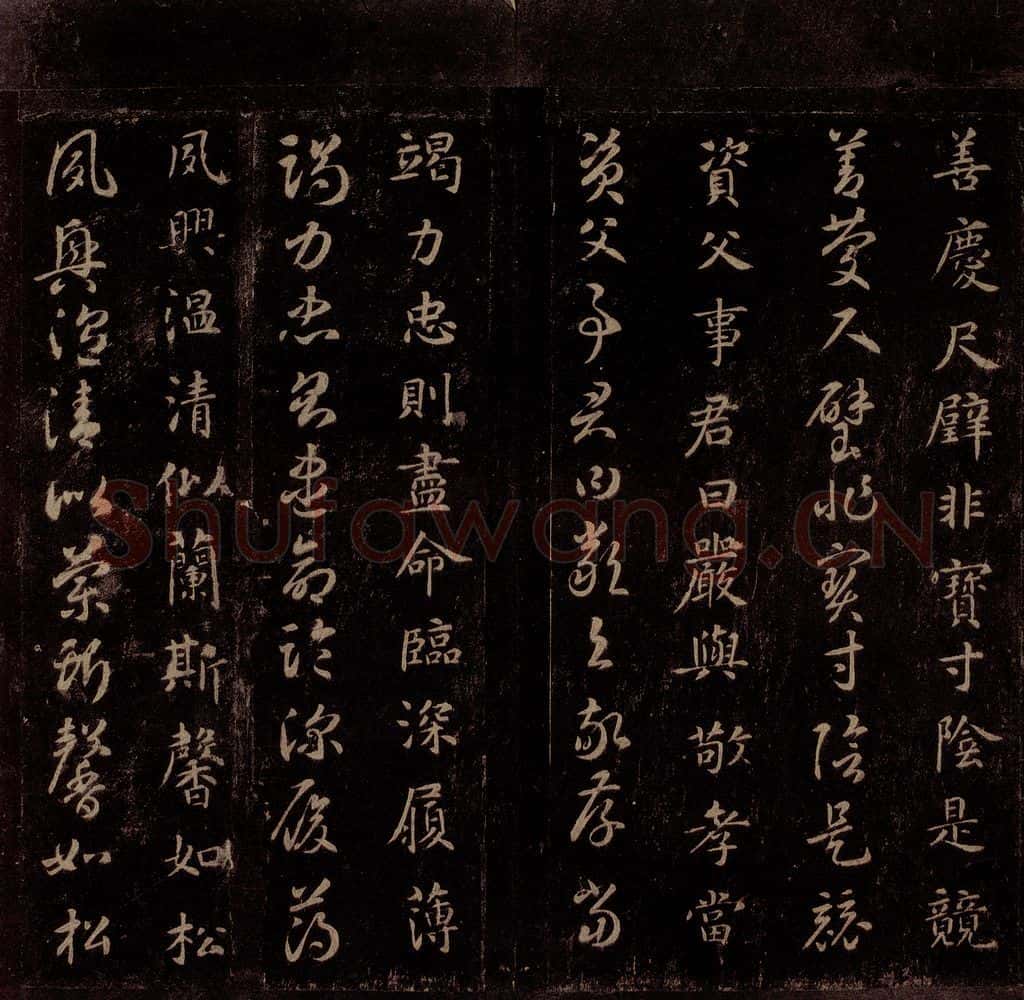 善慶尺璧非寶寸陰是競
善慶尺璧非寶寸陰是競
資父事君曰嚴與敬孝當
資父事君曰嚴與敬孝當
竭力忠則盡命臨深履薄
竭力忠則盡命臨深履薄
夙興溫清似蘭斯馨如松
夙興溫清似蘭斯馨如松
Shufawang.CN